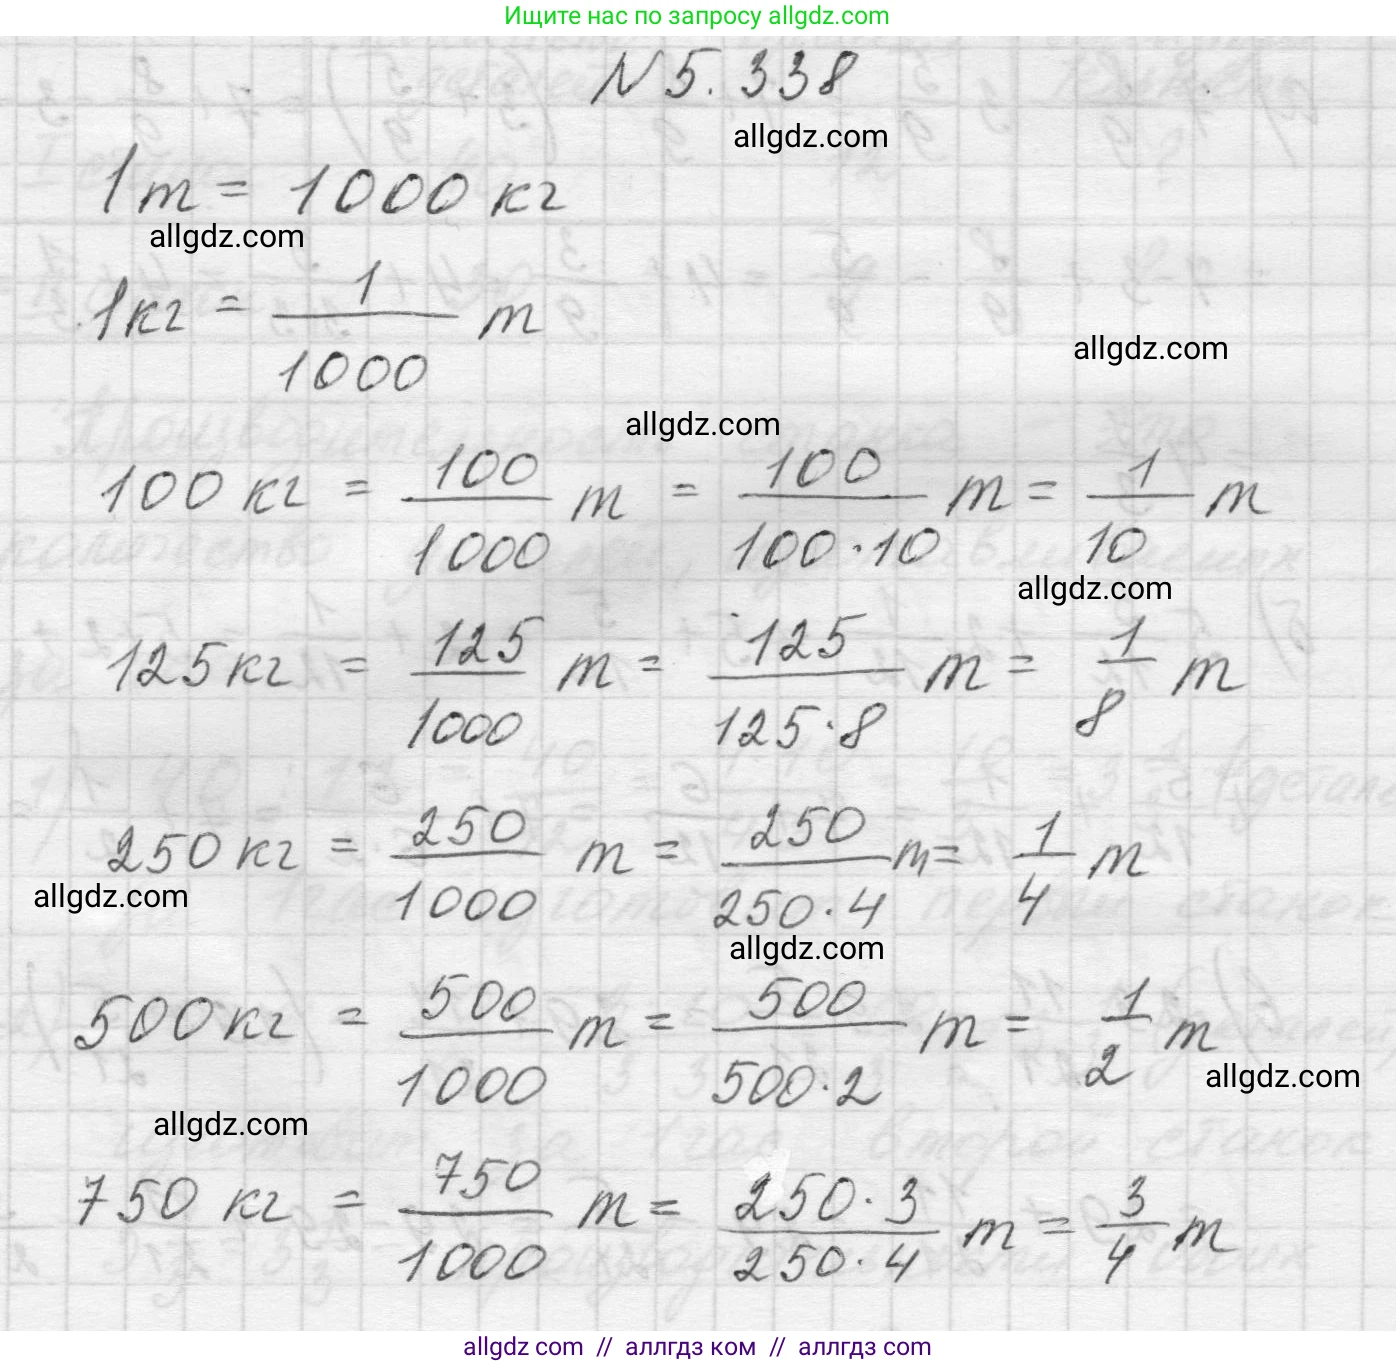 Ищите нас по запросу allgdz.com
N 5. 338
allgdz.com
1 т = 1000 кг
allgdz.com
1 кг = 1/1000 т
allgdz.com
allgdz.com
100 кг = 100/1000 т = 100/(100·10) т = 1/10 т
allgdz.com
125 кг = 125/1000 т = 125/(125·8) т = 1/8 т
250 кг = 250/1000 т = 250/(250·4) т = 1/4 т
allgdz.com
allgdz.com
500 кг = 500/1000 т = 500/(500·2) т = 1/2 т
allgdz.com
allgdz.com
750 кг = 750/1000 т = (250·3)/(250·4) т = 3/4 т
allgdz.com // аллгдз ком // аллгдз.com